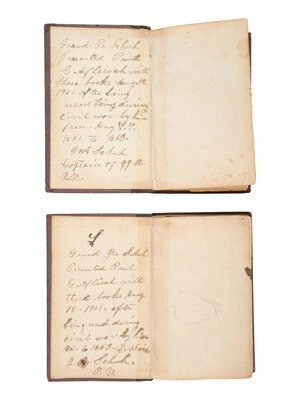 Grand Pa Schuh
Presented Paul
G. Afflisch with
these books Aug 18
1901. after being
used being during
civil war by him
from Aug
1861. to 1863.
Schuh
Captain of
P.V.
Grand Pa Schuh
Presented Paul
G. Afflisch with
these books Aug
18 - 1901. after
being used during
civil war by him
1861. to 1863. Captain
Schuh.
P. V.